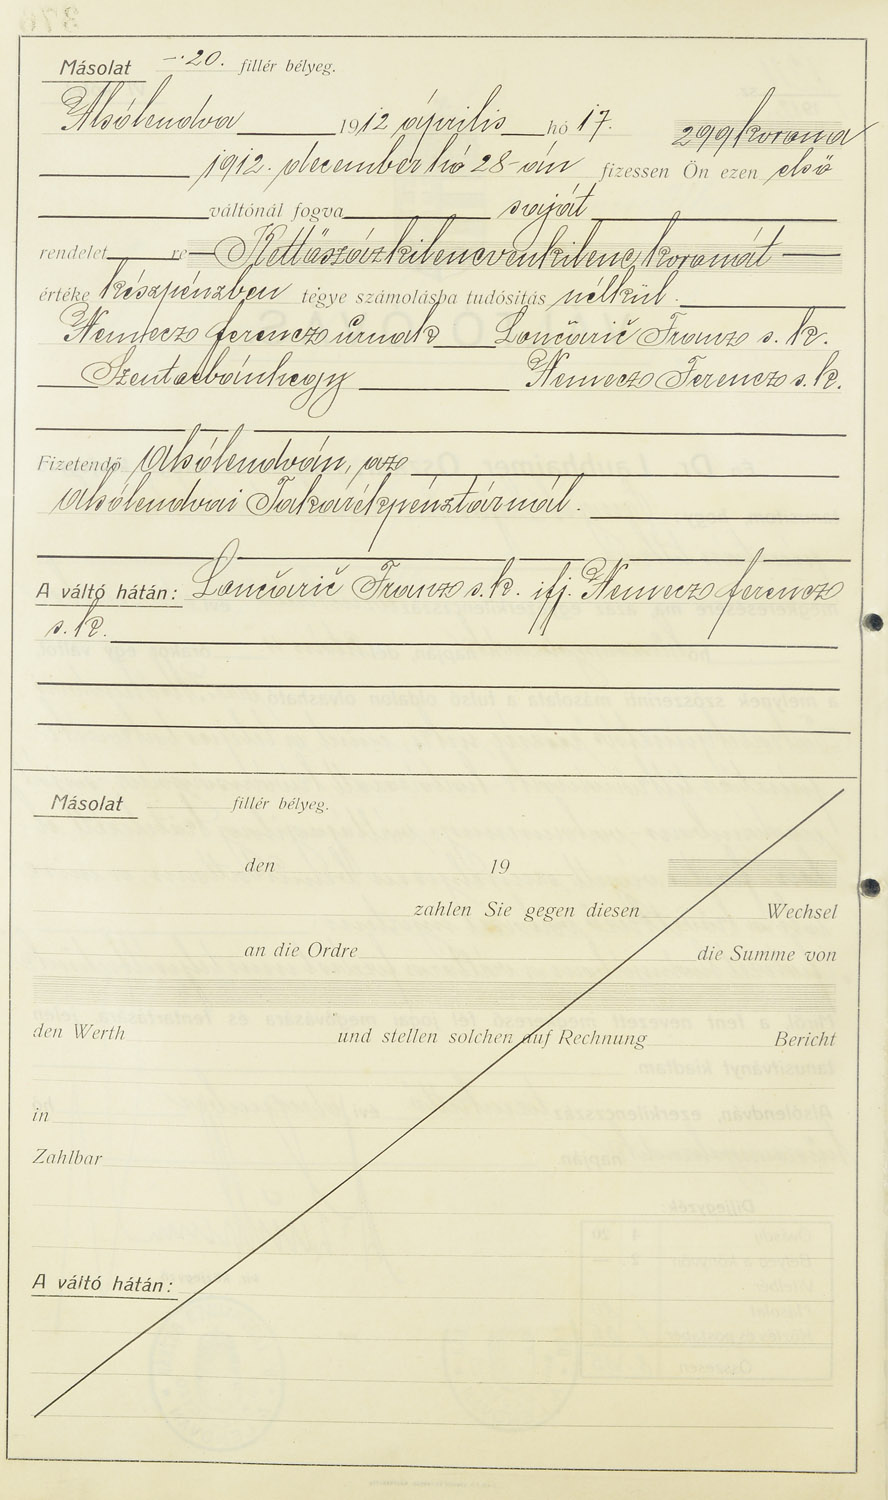 Másolat —·20. fillér bélyeg.
Alsólendva 1912 április hó 17. 299 korona
1912. december hó 28-án fizessen Ön ezen első
váltónál fogva saját
rendelet re — Kettőszázkilencvenkilenc koronát —
értéke készpénzben tegye számolásba tudósitás nélkül.
Nemecz ferencz úrnak Lončarič Franz s. k.
Szentorbánhegy Nemecz Ferencz s. k.
Fizetendő Alsólendván, az
Alsólendvai Takarékpénztárnál.
A váltó hátán: Lončarič Franz s. k. ifj. Nemecz ferencz
s. k.
Másolat fillér bélyeg.
den 19
zahlen Sie gegen diesen Wechsel
an die Ordre die Summe von
den Werth und stellen solchen auf Rechnung Bericht
in
Zahlbar
A váltó hátán: